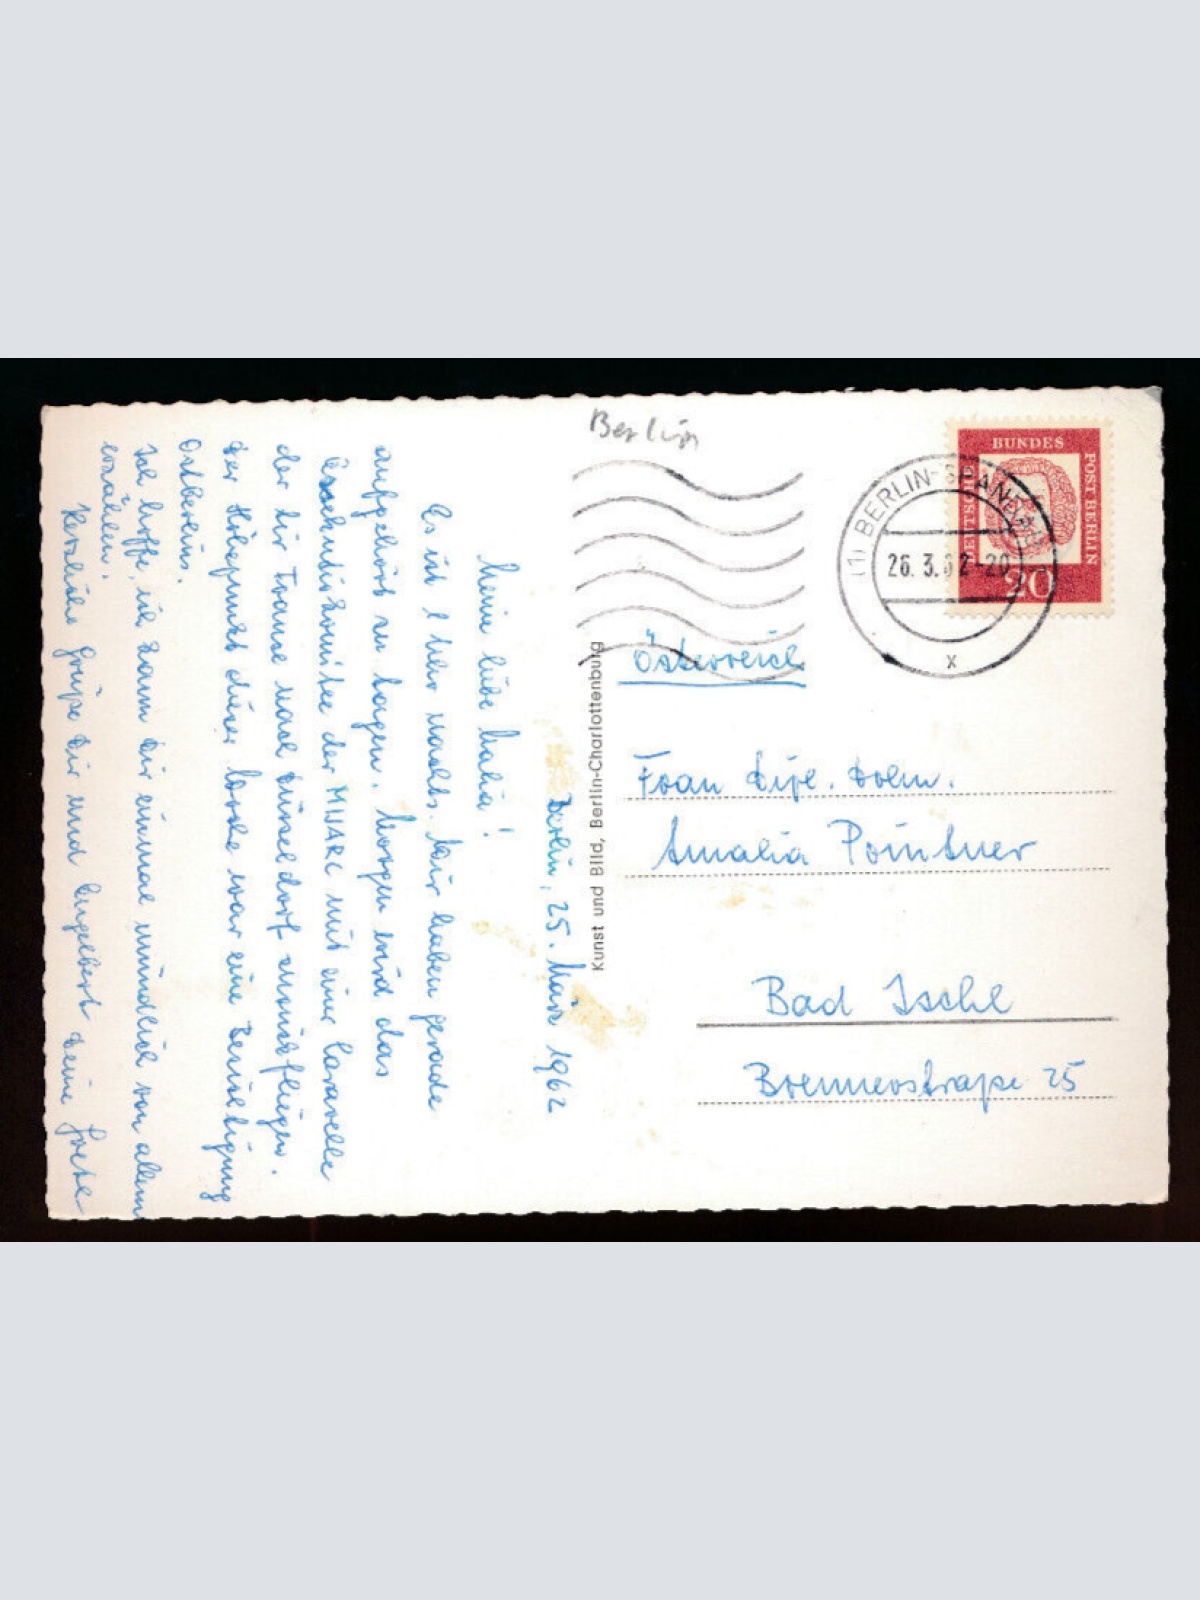 Berlin
BUNDES
POST BERLIN
DEUTSCHE
20
(1) BERLIN-SPANDAU
26. 3. 62-20
x
Österreich
Frau Dipl. Dolm.
Amalia Pointner
Bad Ischl
Brennerstraße 25
Kunst und Bild, Berlin-Charlottenburg
Berlin, 25. März 1962
Meine liebe Malia!
Es ist 1 Uhr nachts. Wir haben gerade
aufgehört zu tagen. Morgen wird das
Exekutivkomitee der MIJARC mit einer Caravelle
der Air France nach Düsseldorf zurückfliegen.
Der Höhepunkt dieser Woche war eine Besichtigung
Ostberlins.
Ich hoffe, ich kann Dir einmal mündlich von allem
erzählen.
Herzliche Grüße Dir und Engelbert Deine Gretl